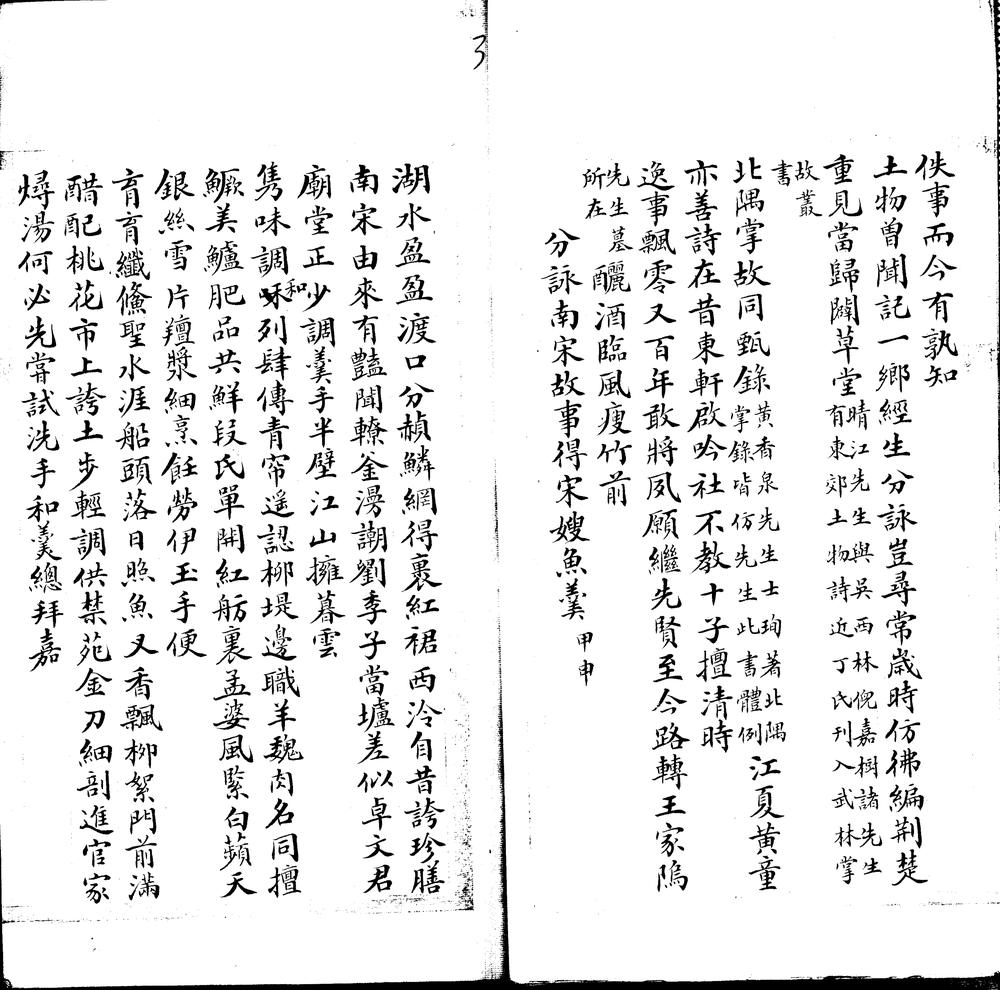 佚事而今有孰知
土物曾聞記一鄉經生分詠豈尋常歲時仿彿編荆楚
重見當歸闢草堂晴江先生與吳西林倪嘉樹諸先生
有東郊土物詩近丁氏刊入武林掌
故叢
書
北隅掌故同甄錄黃香泉先生士珣著北隅
掌錄皆仿先生此書體例江夏黃童
亦善詩在昔東軒啟吟社不教十子擅清時
逸事飄零又百年敢將夙願繼先賢至今路轉王家隖
先生墓
所在釃酒臨風瘦竹前
分詠南宋故事得宋嫂魚羹甲申
湖水盈盈渡口分赬鱗網得裹紅裙西泠自昔誇珍膳
南宋由來有豔聞轑釜漫謝劉季子當壚差似卓文君
廟堂正少調羹手半壁江山擁暮雲
雋味調和列肆傳青帘遥認柳堤邊職羊魏肉名同擅
鱖美鱸肥品共鮮段氏單開紅舫裏孟婆風緊白蘋天
銀絲雪片羶漿細烹飪勞伊玉手便
育育纖鯈聖水涯船頭落日照魚叉香飄柳絮門前滿
醋配桃花市上誇土步輕調供禁苑金刀細剖進官家
燖湯何必先嘗試洗手和羹總拜嘉
3